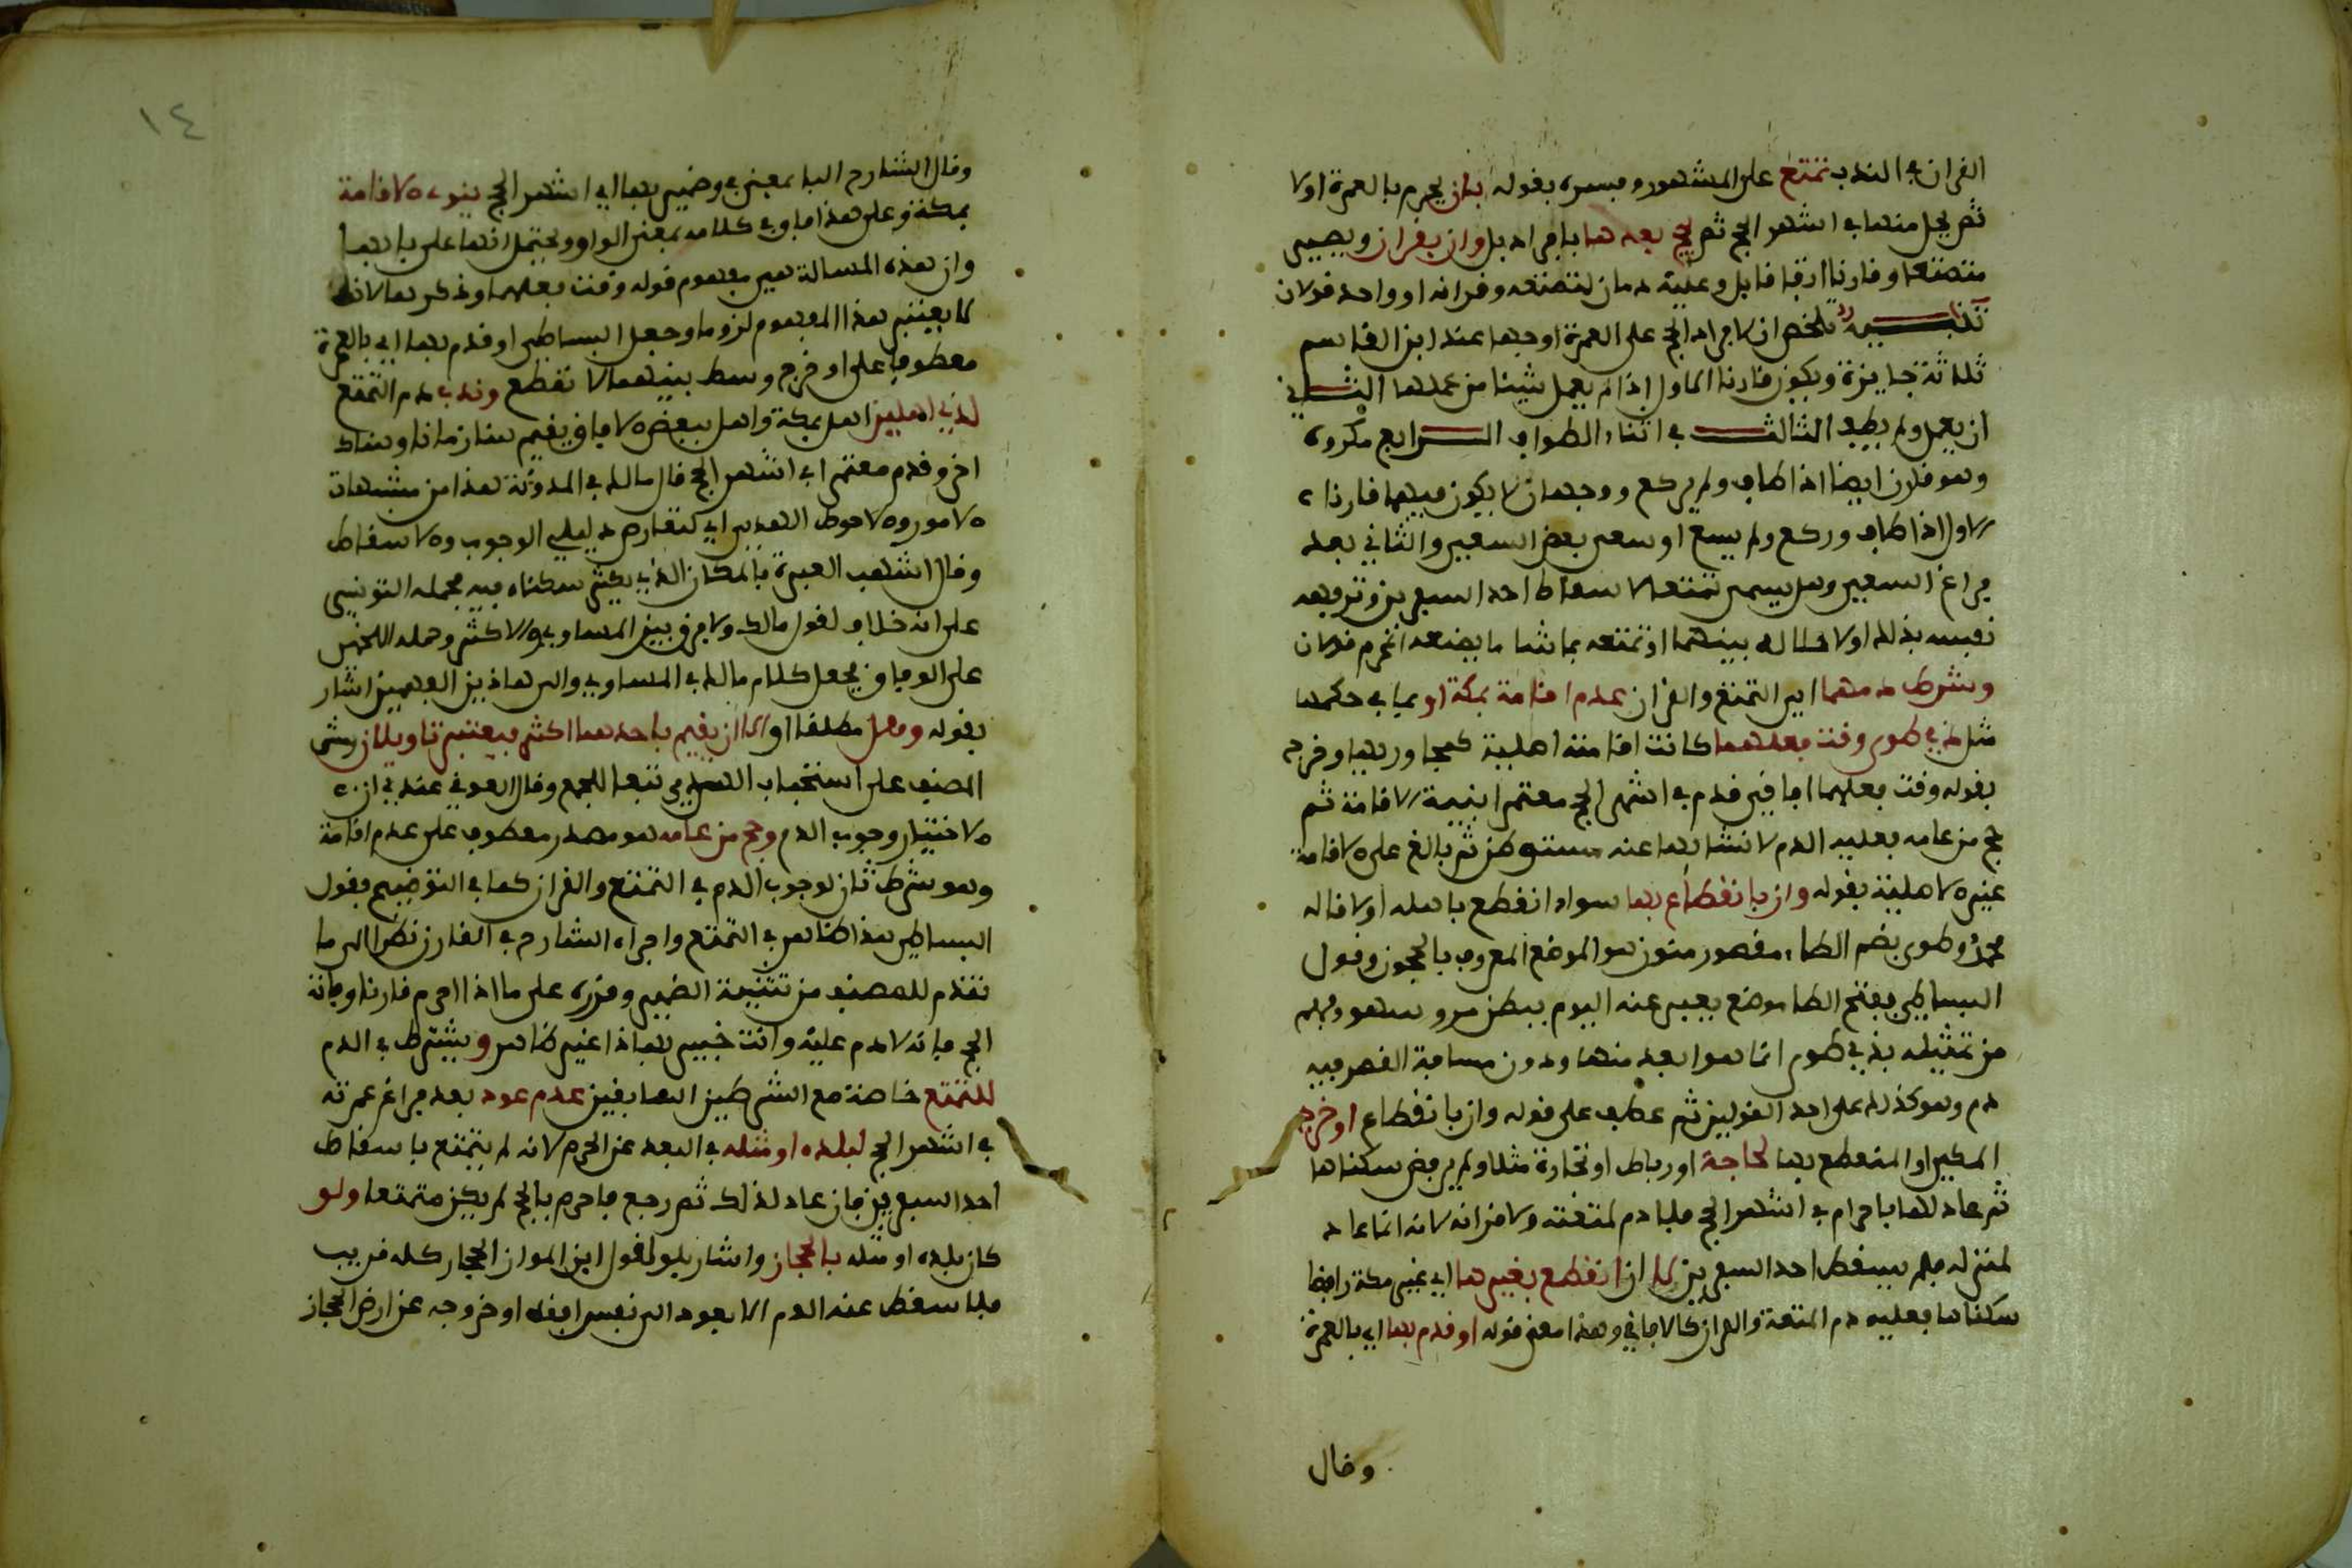 القران في الندب تمتع على المشهور وفسره بقوله بان يحرم بالعمرة اولا
ثم يحل منها في اشهر الحج ثم يحج بعدها بافراد بل وان بقران ويصير
متمتعا وقارنا اتفاقا بل وعليه دمان لتمتعه وقرانه او واحد قولان
تنبيه تلخص ان لارداف الحج على العمرة اوجها عند ابن القاسم
ثلاثة جايزة ويكون قارنا الاول اذا لم يعمل شيئا من عملها الثاني
ان يعمل ولم يطف الثالث في اثناء الطواف الرابع مكروه
وهو قارن ايضا اذا طاف ولم يركع ووجهان لا يكون فيهما قارنا
الاول اذا طاف وركع ولم يسع او سعى بعض السعي والثاني بعد
فراغ السعي وهل يسمى تمتعا لاسقاط احد السفرين وترفيهه
نفسه بذلك او لاحلاله بينهما او تمتعه بما شا ما يمنعه المحرم قولان
وشرط دمهما اي التمتع والقران عدم اقامة بمكة او بما في حكمها
مثل ذي طوى وقت فعلهما كانت اقامته اهلية كمجاور بها وخرج
بقوله وقت فعلهما افاقي قدم في اشهر الحج معتمرا بنية الاقامة ثم
حج من عامه فعليه الدم لانشائهما عنه مستوطن ثم بالغ على الاقامة
غير الاهلية بقوله وان بانقطاع بها سواء انقطع باهله او لا قاله
محمد وطوى بضم الطاء مقصور منون هو الموضع المعروف بالحجون وقول
البساطي بفتح الطا موضع يعبر عنه اليوم ببطن مرو سهو وفهم
من تمثيله بذي طوى ان ما هو ابعد منها ودون مسافة القصر فيه
دم وهو كذلك على احد القولين ثم عطف على قوله وان بانقطاع او خرج
المكي او المنقطع بها لحاجة او رباط او تجارة مثلا ولم يرفض سكناها
ثم عاد لها باحرام في اشهر الحج فلا دم لمتعته ولا قرانه لانه انما عاد
لمنزله فلم يسقط احد السفرين لا ان انقطع بغيرها اي غير مكة رافضا
سكناها فعليه دم المتعة والقران كالافاقي وهذا معنى قوله او قدم بها اي بالعمرة
وقال
١٤
وقال الشارح البا بمعنى في وضمير بها اي اشهر الحج ينوي الاقامة
بمكة وعلى هذا فاو في كلامه بمعنى الواو ويحتمل انها على بابها
وان هذه المسالة هي مفهوم قوله وقت فعلهما وذكرها لانه
لا يعتبر هذا المفهوم لزوما وجعل البساطي او قدم بها اي بالعمرة
معطوفا على او خرج وسط بينهما لا نقطع وندب دم التمتع
لذي اهلين اهل بمكة واهل ببعض الافاق يقيم هنا زمانا وهناك
اخر وقدم معتمرا في اشهر الحج قال مالك في المدونة هذا من مشبهات
الامور والاحوط الهدي اي لتعارض دليلي الوجوب والاسقاط
وقال اشهب العبرة بالمكان الذي يكثر سكناه فيه فحمله التونسي
على انه خلاف لقول مالك ولا فرق بين المساوي والاكثر وحمله اللخمي
على الوفاق فجعل كلام مالك في المساوي والى هاذين الفهمين اشار
بقوله وهل مطلقا او الا ان يقيم باحدهما اكثر فيعتبر تاويلان ومشى
المصنف على استحباب الهدي تبعا للجمع وقال العوفي عندي ان
الاختيار وجوب الدم وحج من عامه هو مصدر معطوف على عدم اقامة
وهو شرط ثان لوجوب الدم في التمتع والقران كما في التوضيح فقول
البساطي هذا ظاهر في التمتع واجراه الشارح في القارن نظرا الى ما
تقدم للمصنف من تثنية الضمير وقرره على ما اذا احرم قارنا وفاته
الحج فانه لا دم عليه وانت خبير بهذا غير ظاهر ويشترط في الدم
للتمتع خاصة مع الشرطين السابقين عدم عود بعد فراغ عمرته
في اشهر الحج لبلده او مثله في البعد عن الحرم لانه لم يتمتع باسقاط
احد السفرين فان عاد لذلك ثم رجع فاحرم بالحج لم يكن متمتعا ولو
كان بلده او مثله بالحجاز واشار بلو لقول ابن المواز الحجاز كله قريب
فلا يسقط عنه الدم الا بعود الى نفس افقه او خروجه عن ارض الحجاز